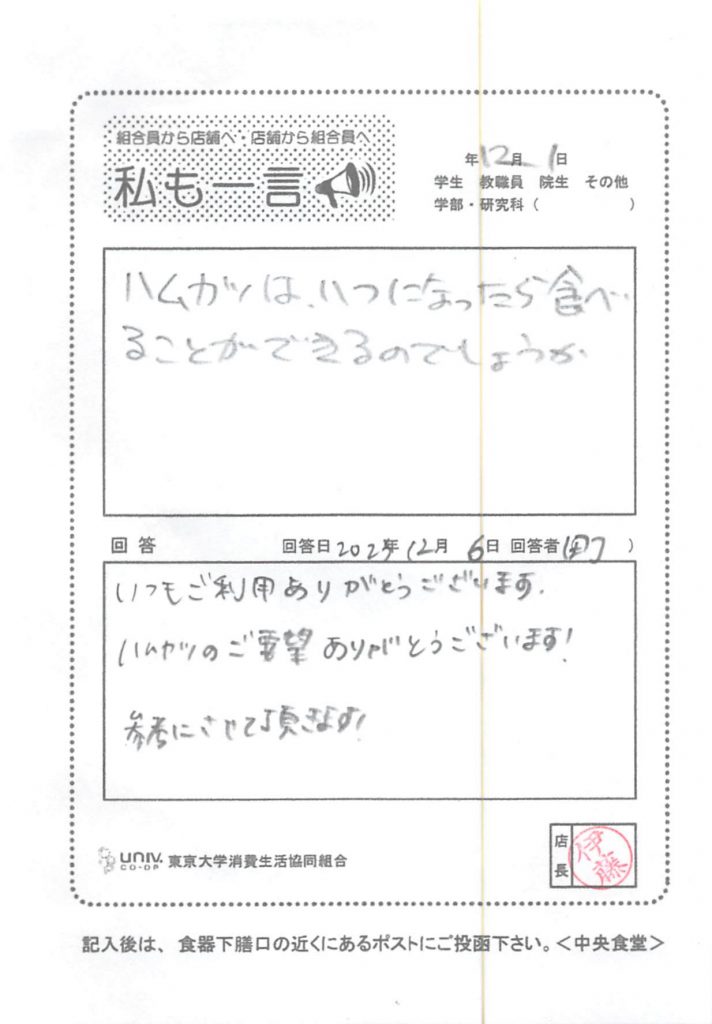 組合員から店舗へ・店舗から組合員へ
私も一言
年12月 1日
学生 教職員 院生 その他
学部・研究科( )
ハムカツは、いつになったら食べ
ることができるのでしょうか
回答 回答日2025年12月 6日 回答者( )
いつもご利用ありがとうございます.
ハムカツのご要望ありがとうございます!
参考にさせて頂きます!
UNIV. CO-OP 東京大学消費生活協同組合
店長 伊藤
記入後は、食器下膳口の近くにあるポストにご投函下さい。<中央食堂>